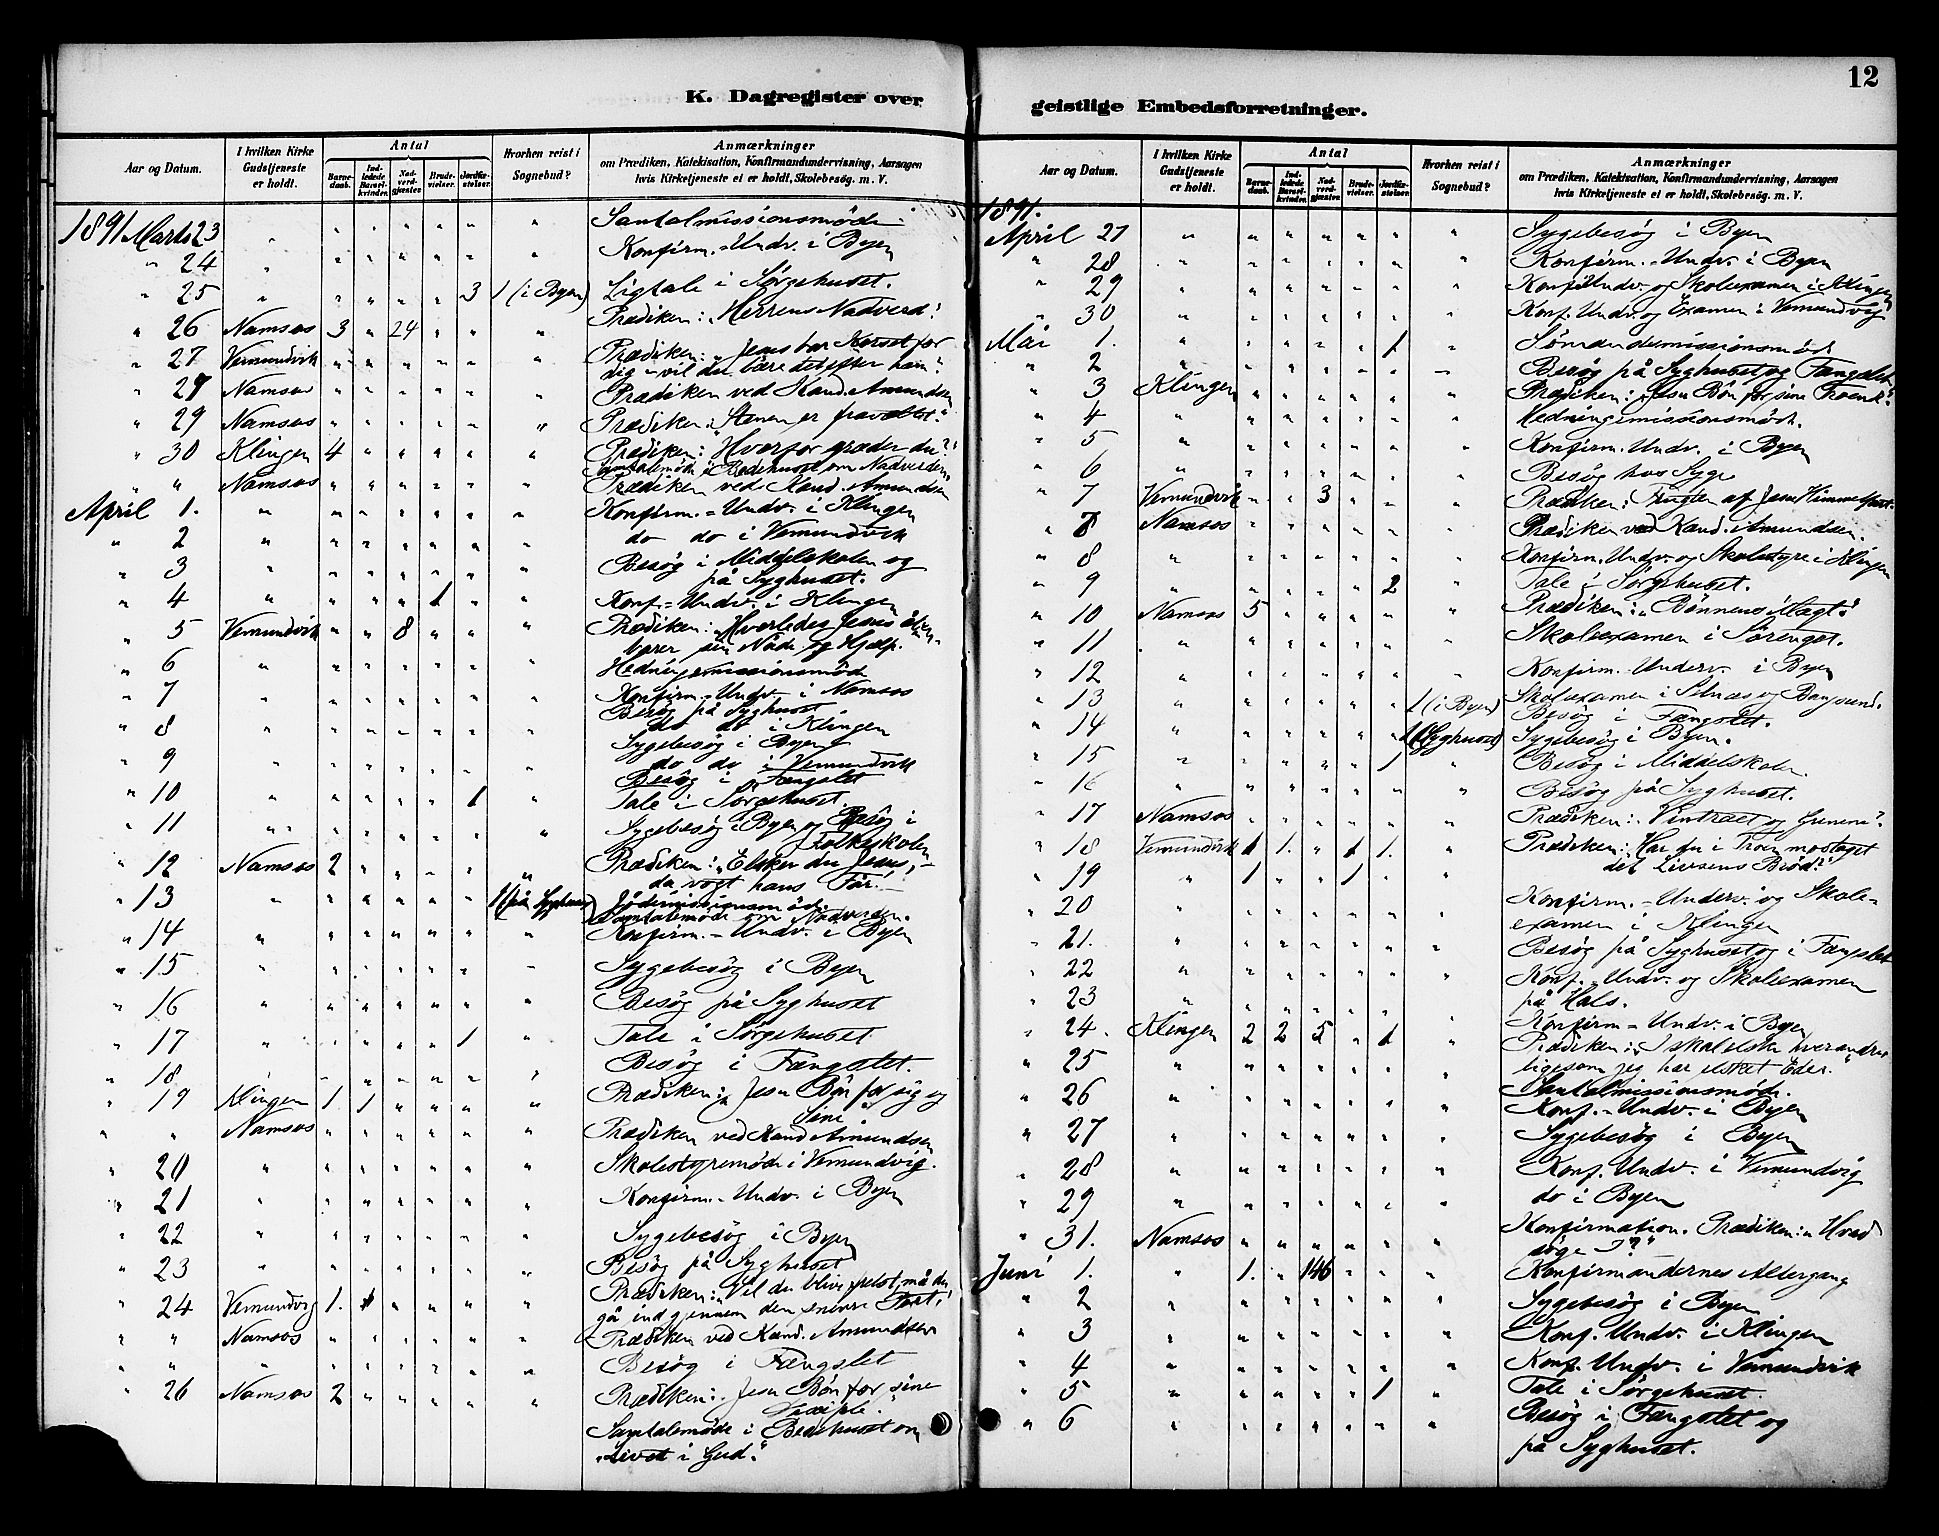 12
K. Dagregister over geistlige Embedsforretninger.
Aar og Datum.
I hvilken Kirke Gudstjeneste er holdt.
Antal
Barnedaab.
Indledede Barselkvinder.
Nadverdgjæster.
Brudevielser.
Jordfæstelser.
Hvorhen reist i Sognebud?
Anmærkninger
om Prædiken, Katekisation, Konfirmandundervisning, Aarsagen
hvis Kirketjeneste ei er holdt, Skolebesøg. m. V.
1891 Marts 23 " " " " " " " Santalmissionsmøde.
" 24 " " " " " " " Konfirm.-Undv. i Byen
" 25 " " " " " 3 1 (i Byen) Ligtale i Sørgehuset.
" 26 Namsos 3 " 24 " " " Prædiken: "Herrens Nadverd"
" 27 Vemundvik " " " " " " Prædiken: "Jesus bar Korset for
dig - vil du bære det efter ham?"
" 29 Namsos " " " " " " Prædiken ved Kand. Amundsen
" 29 Namsos " " " " " " Prædiken: "Stenen er fravæltet."
" 30 Klingen 4 " " " " " Prædiken: "Hvorfor græder du?"
Samtalemøde i Bedehuset om Nadverden
" " Namsos " " " " " " Prædiken ved Kand. Amundsen
April 1. " " " " " " " Konfirm.-Undv. i Klingen
" 2 " " " " " " " do do i Vemundvik
" 3 " " " " " " " Besøg i Middelskolen og
på Syghuset.
" 4 " " " " 1 " " Konf.-Undv. i Klingen
" 5 Vemundvik " " 8 " " " Prædiken: "Hvorledes Jesus åben-
barer sin Nåde og Hjælp.
" 6 " " " " " " " Hedningemissionsmøde
" 7 " " " " " " " Konfirm.-Undv. i Namsos
Besøg på Syghuset
" 8 " " " " " " " do do i Klingen
Sygebesøg i Byen
" 9 " " " " " " " do do i Vemundvik
Besøg i Fængslet
" 10 " " " " " 1 " Tale i Sørgehuset.
" 11 " " " " " " " Sygebesøg i Byen og Besøg i
Folkeskolen
" 12 Namsos 2 " " " " " Prædiken: "Elsker du Jesus,
da vogt hans Får!"
" 13 " " " " " " 1 (på Syghuset) Jødemissionsmøde.
Samtalemøde om Nadverden.
" 14 " " " " " " " Konfirm.-Undv. i Byen
" 15 " " " " " " " Sygebesøg i Byen
" 16 " " " " " " " Besøg på Syghuset
" 17 " " " " " 1 " Tale i Sørgehuset
" 18 " " " " " " " Besøg i Fængslet.
" 19 Klingen 1 1 " " " " Prædiken: "Jesu Bøn for sig og
Sine"
" " Namsos " " " " " " Prædiken ved Kand Amundsen
" 20 " " " " " " " Skolestyremøde i Vemundvig.
" 21 " " " " " " " Konfirm.-Undv. i Byen
" 22 " " " " " " " Sygebesøg i Byen
" 23 " " " " " " " Besøg på Syghuset
" 24 Vemundvig 1. 1 " " " " Prædiken: "Vil du blive frelst, må du
gå ind gjennem den snevre Port."
" " Namsos " " " " " " Prædiken ved Kand. Amundsen
" " " " " " " " " Besøg i Fængslet
" 26 Namsos 2 " " " " " Prædiken: "Jesu Bøn for sine
Disciple."
Samtalemøde i Bedehuset om
"Livet i Gud."
Aar og Datum.
I hvilken Kirke Gudstjeneste er holdt.
Antal
Barnedaab.
Indledede Barselkvinder.
Nadverdgjæster.
Brudevielser.
Jordfæstelser.
Hvorhen reist i Sognebud?
Anmærkninger
om Prædiken, Katekisation, Konfirmandundervisning, Aarsagen
hvis Kirketjeneste ei er holdt, Skolebesøg. m. V.
1891.
April 27 " " " " " " " Sygebesøg i Byen
" 28 " " " " " " " Konfirm.-Undv. i Byen
" 29 " " " " " " " Konf. Undv. og Skoleexamen i Klingen
" 30 " " " " " " " Konf. Undv. og Examen i Vemundvig
Mai 1. " " " " " 1 "
" 2 " " " " " " " Besøg på Syghuset og Fængslet
" 3 Klingen " " " " " " Prædiken: "Jesu Bøn for sine Troende."
" 4 " " " " " " " Hedningemissionsmøde.
" 5 " " " " " " " Konfirm. Undv. i Byen
" 6 " " " " " " " Besøg hos Syge
" 7 Vemundvik " " 3 " " " Prædiken: Frugten af Jesu Himmelfart.
" 7 Namsos " " " " " " Prædiken ved Kand. Amundsen.
" 8 " " " " " " " Konfirm. Undv. og Skolestyre i Klingen
" 9 " " " " " 2 " Tale i Sørgehuset.
" 10 Namsos 5 " " " " " Prædiken: "Bønnens Magt."
" 11 " " " " " " " Skoleexamen i Sørenget.
" 12 " " " " " " " Konfirm.-Underv. i Byen
" 13 " " " " " " 1 (i Byen) Skoleexamen i Selnæs og Bangsund.
Besøg i Fængslet.
" 14 " " " " " " 1 (Syghuset) Sygebesøg i Byen.
" 15 " " " " " 1 " Besøg i Middelskolen
" 16 " " " " " " " Besøg på Syghuset.
" 17 Namsos " " " " " " Prædiken: "Vintræet og Grenene".
" 18 Vemundvik 1 1. " 1 1. " Prædiken: "Har du i Troen modtaget
det Livsens Brød?"
" 19 " 1 " " 1 " "
" 20 " " " " " " " Konfirm.-Underv. og Skole-
examen i Klingen
" 21. " " " " " " " Besøg på Syghuset og i Fængslet
" 22 " " " " " " " Konf.-Undv. og Skoleexamen
på Hals.
" 23 " " " " " " " Konfirm-Undv. i Byen
" 24. Klingen 2 2 5 " 1 " Prædiken: "I skal elske hverandre
ligesom jeg har elsket Eder."
" 25 " " " " " " " Santalmissionsmøde.
" 26 " " " " " " " Konf.-Undv. i Byen
" 27 " " " " " " " Sygebesøg i Byen
" 28 " " " " " " " Konf. Undv. i Vemundvig
" 29 " " " " " " " do i Byen
" 31. Namsos " " " " " " Konfirmation. Prædiken: "Hvad
søge I?"
Juni 1. " 1. " 146 " " " Konfirmandernes Altergang
" 2 " " " " " " " Sygebesøg i Byen
" 3 " " " " " " " Konf. Undv. i Klingen
" 4 " " " " " " " Konf. Undv. i Vemundvik
" 5 " " " " " 1 " Tale i Sørgehuset
" 6 " " " " " " " Besøg i Fængslet og
på Syghuset.